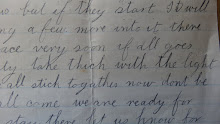 but if they start it will
a few more into it there
ace very soon if all goes
ly take thick with the light
all stick together now dont be
all some we are ready for
stay there let us know for